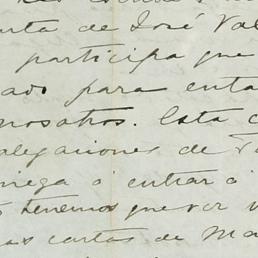 nta de José Val
participa que
ado para enta
nosotros. Esta c
alegaciones de
niega á entrar á
tenemos que ver
as cartas de Ma